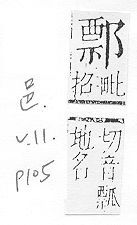 毗
招
切音瓢
地名
邑.
v.11.
p105